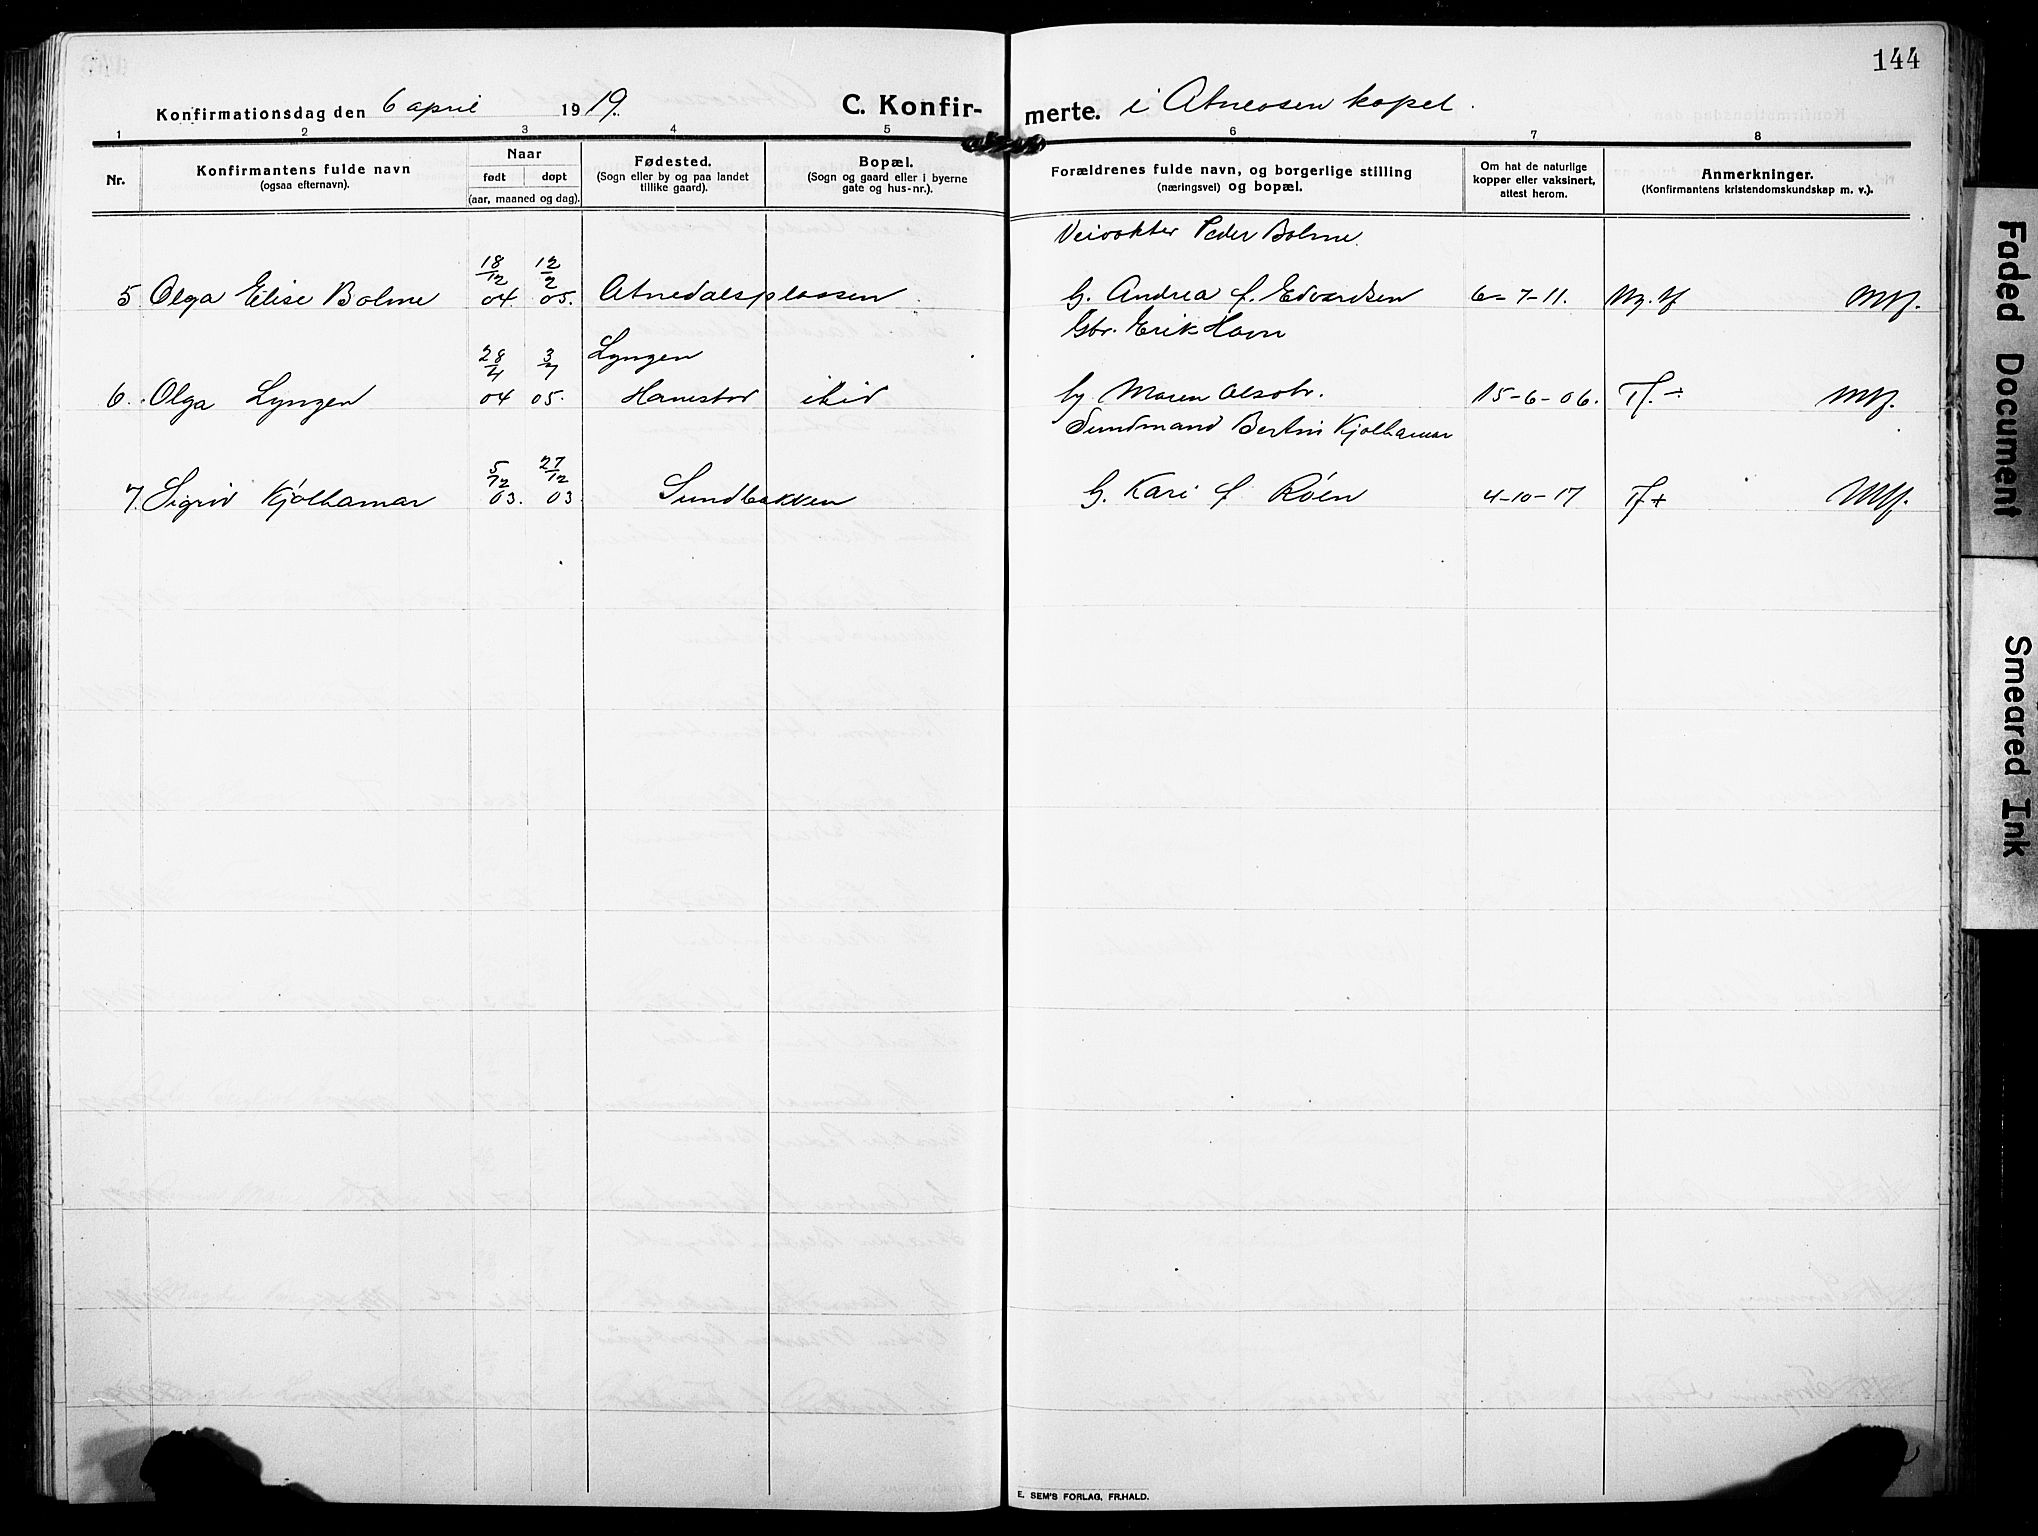 144
Konfirmationsdag den 6 april 1919. C. Konfir- merte. i Atneosen kapel.
1 2 3 4 5 6 7 8
Nr.
Konfirmantens fulde navn
(ogsaa efternavn).
Naar
født døpt
(aar, maaned og dag).
Fødested.
(Sogn eller by og paa landet
tillike gaard).
Bopæl.
(Sogn og gaard eller i byerne
gate og hus-nr.).
Forældrenes fulde navn, og borgerlige stilling
(næringsvei) og bopæl.
Om hat de naturlige
kopper eller vaksinert,
attest herom.
Anmerkninger.
(Konfirmantens kristendomskundskap m. v.).
Veivokter Peder Bolme.
18/12 12/2
5 Olga Elise Bolme 04. 05. Atnedalsplassen G. Andrea f. Edvardsen 6-7-11. Mg. tf
Gbr. Erik Havn
28/4 3/7 Lyngen
6. Olga Lyngen 04 05. Hanestad ibid Maren Olsdtr. 15-6-06. Tf. ÷
Sundmand Bertin Kjølhamar
5/12 27/12
7. Sigrid Kjølhamar 03. 03 Sundbakken G. Kari f. Røen 4-10-17 Tf +
E. SEM'S FORLAG, FR.HALD.
Faded Document
Smeared Ink